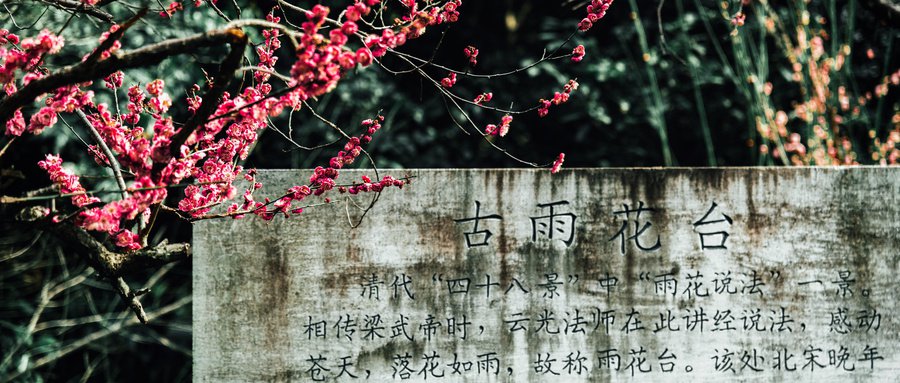 古雨花台
清代“四十八景”中“雨花说法”一景。
相传梁武帝时，云光法师在此讲经说法，感动
苍天，落花如雨，故称雨花台。该处北宋晚年